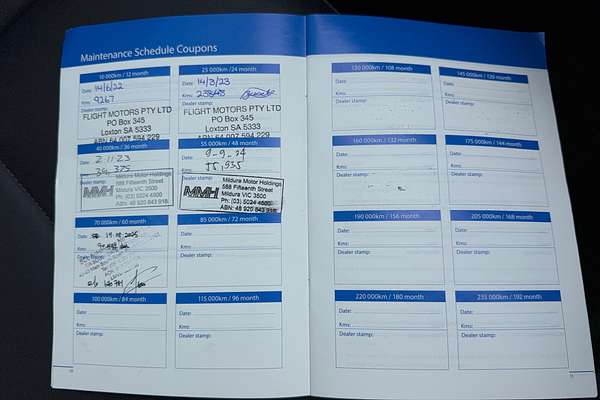 Maintenance Schedule Coupons
10 000km / 12 month
Date: 14/6/22
Kms: 9267
Dealer stamp:
FLIGHT MOTORS PTY LTD
PO Box 345
Loxton SA 5333
25 000km / 24 month
Date: 14/3/23
Kms:
Dealer stamp:
FLIGHT MOTORS PTY LTD
PO Box 345
Loxton SA 5333
40 000km / 36 month
Date: 2.11.23
Kms: 39,375
Dealer stamp:
MMH
Mildura Motor Holdings
588 Fifteenth Street
Mildura VIC 3500
Ph: (03) 5024 4500
55 000km / 48 month
Date: 9-9-24
Kms:
Dealer stamp:
MMH
Mildura Motor Holdings
588 Fifteenth Street
Mildura VIC 3500
Ph: (03) 5024 4500
ABN: 48 920 843 918
70 000km / 60 month
Date:
Kms:
Dealer stamp:
85 000km / 72 month
Date:
Kms:
Dealer stamp:
100 000km / 84 month
Date:
Kms:
Dealer stamp:
115 000km / 96 month
Date:
Kms:
Dealer stamp:
130 000km / 108 month
Date:
Kms:
Dealer stamp:
145 000km / 120 month
Date:
Kms:
Dealer stamp:
160 000km / 132 month
Date:
Kms:
Dealer stamp:
175 000km / 144 month
Date:
Kms:
Dealer stamp:
190 000km / 156 month
Date:
Kms:
Dealer stamp:
205 000km / 168 month
Date:
Kms:
Dealer stamp:
220 000km / 180 month
Date:
Kms:
Dealer stamp:
235 000km / 192 month
Date:
Kms:
Dealer stamp: